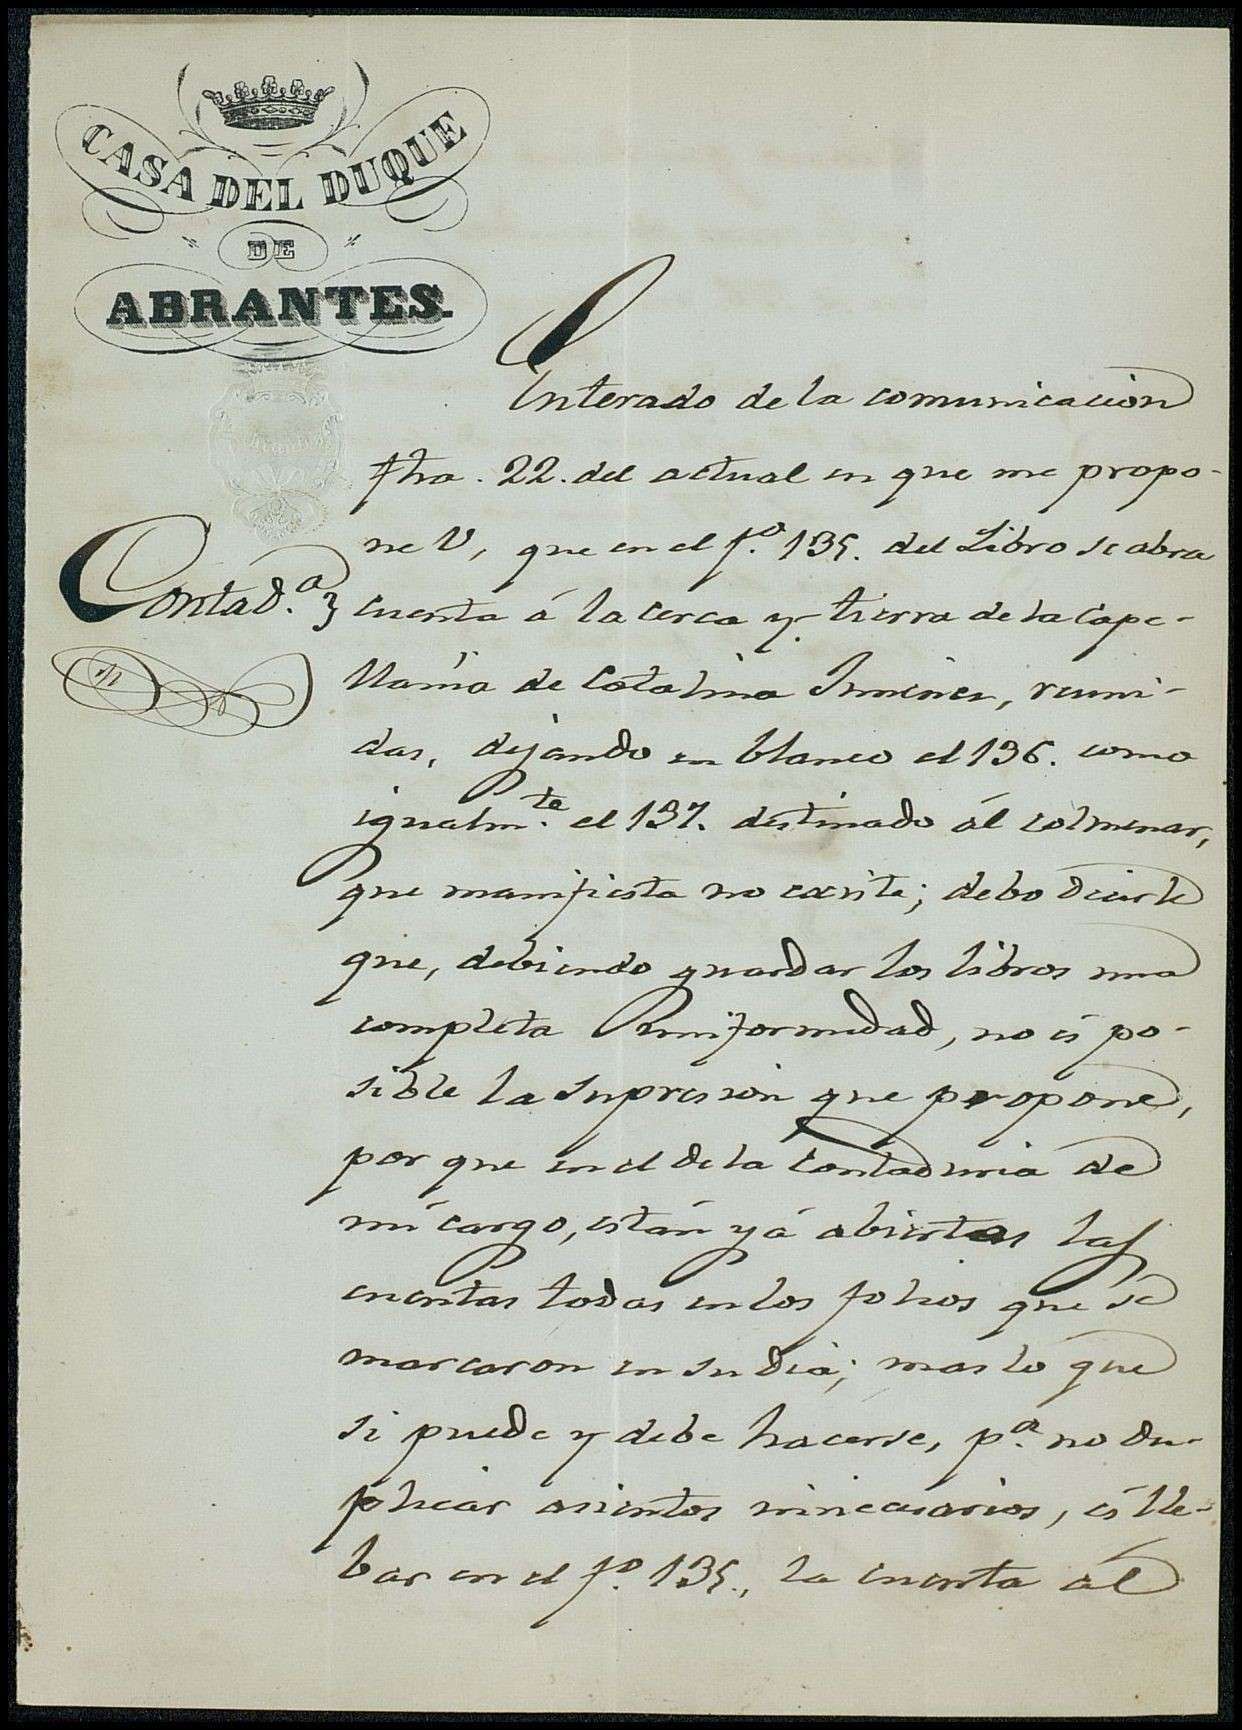 CASA DEL DUQUE
DE
ABRANTES.
Enterado de la comunicacion
fha. 22. del actual en que me propo-
ne V, que en el f.º 135. del Libro se abra
Contad.ª
cuenta á la cerca y tierra de la Cape-
llanía de Catalina Jimenez, reuni-
das, dejando en blanco el 136. como
igualm.te el 137. destinado ál colmenar,
que manifiesta no existe; debo decirle
que, debiendo guardar los libros una
completa uniformidad, no és po-
sible la supresion que propone,
por que en el de la Contaduria de
mí cargo, están yá abiertas las
cuentas todas en los folios que se
marcaron en su dia; mas lo que
si puede y debe hacerse, p.ª no du-
plicar asientos innecesarios, és lle-
bar en el f.º 135., la cuenta ál